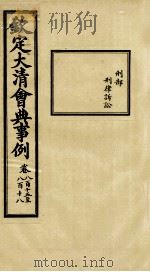 刑部
刑律訴訟
欽定大清會典事例
卷八百十五至
八百十八